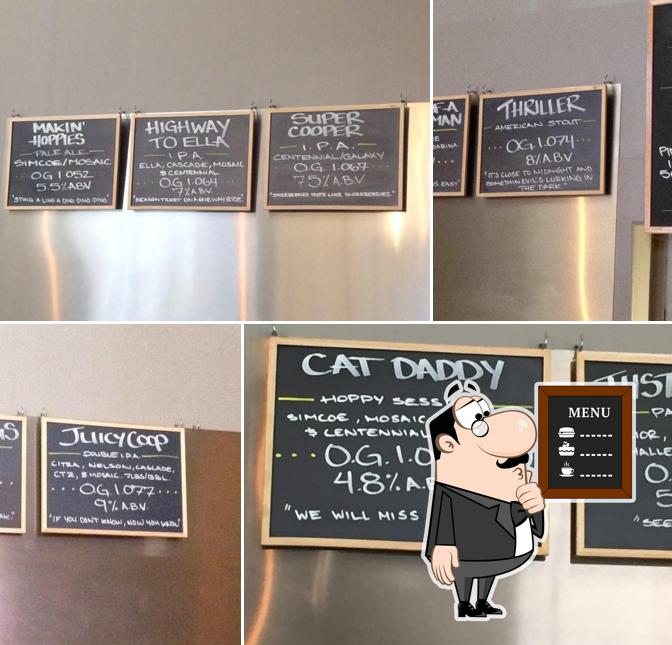 MAKIN'
HOPPIES
PALE ALE
SIMCOE/MOSAIC
OG 1052
5.5% ABV
"STING A LING A DING DING DING"
HIGHWAY
TO ELLA
I.P.A.
ELLA, CASCADE, MOSAIC
& CENTENNIAL
O.G. 1.064
7% ABV
"SEASON TICKET ON A ONE WAY RIDE"
SUPER
COOPER
I.P.A.
CENTENNIAL/GALAXY
O.G. 1.069
7.5% A.B.V.
"SNOZBERRIES TASTE LIKE SNOZBERRIES."
MAN
IS EASY"
THRILLER
AMERICAN STOUT
OG 1.074
8% ABV
"IT'S CLOSE TO MIDNIGHT AND
SOMETHIN EVIL'S LURKING IN
THE DARK."
JUICY COOP
DOUBLE I.P.A.
CITRA, NELSON, CASCADE,
CTZ, & MOSAIC. 7LBS/BBL.
O.G. 1.077
9% A.B.V.
"IF YOU DON'T KNOW, NOW YOU KNOW"
CAT DADDY
HOPPY SESS
SIMCOE, MOSAIC
& CENTENNIAL
O.G. 1.0
4.8% A.
"WE WILL MISS
MENU